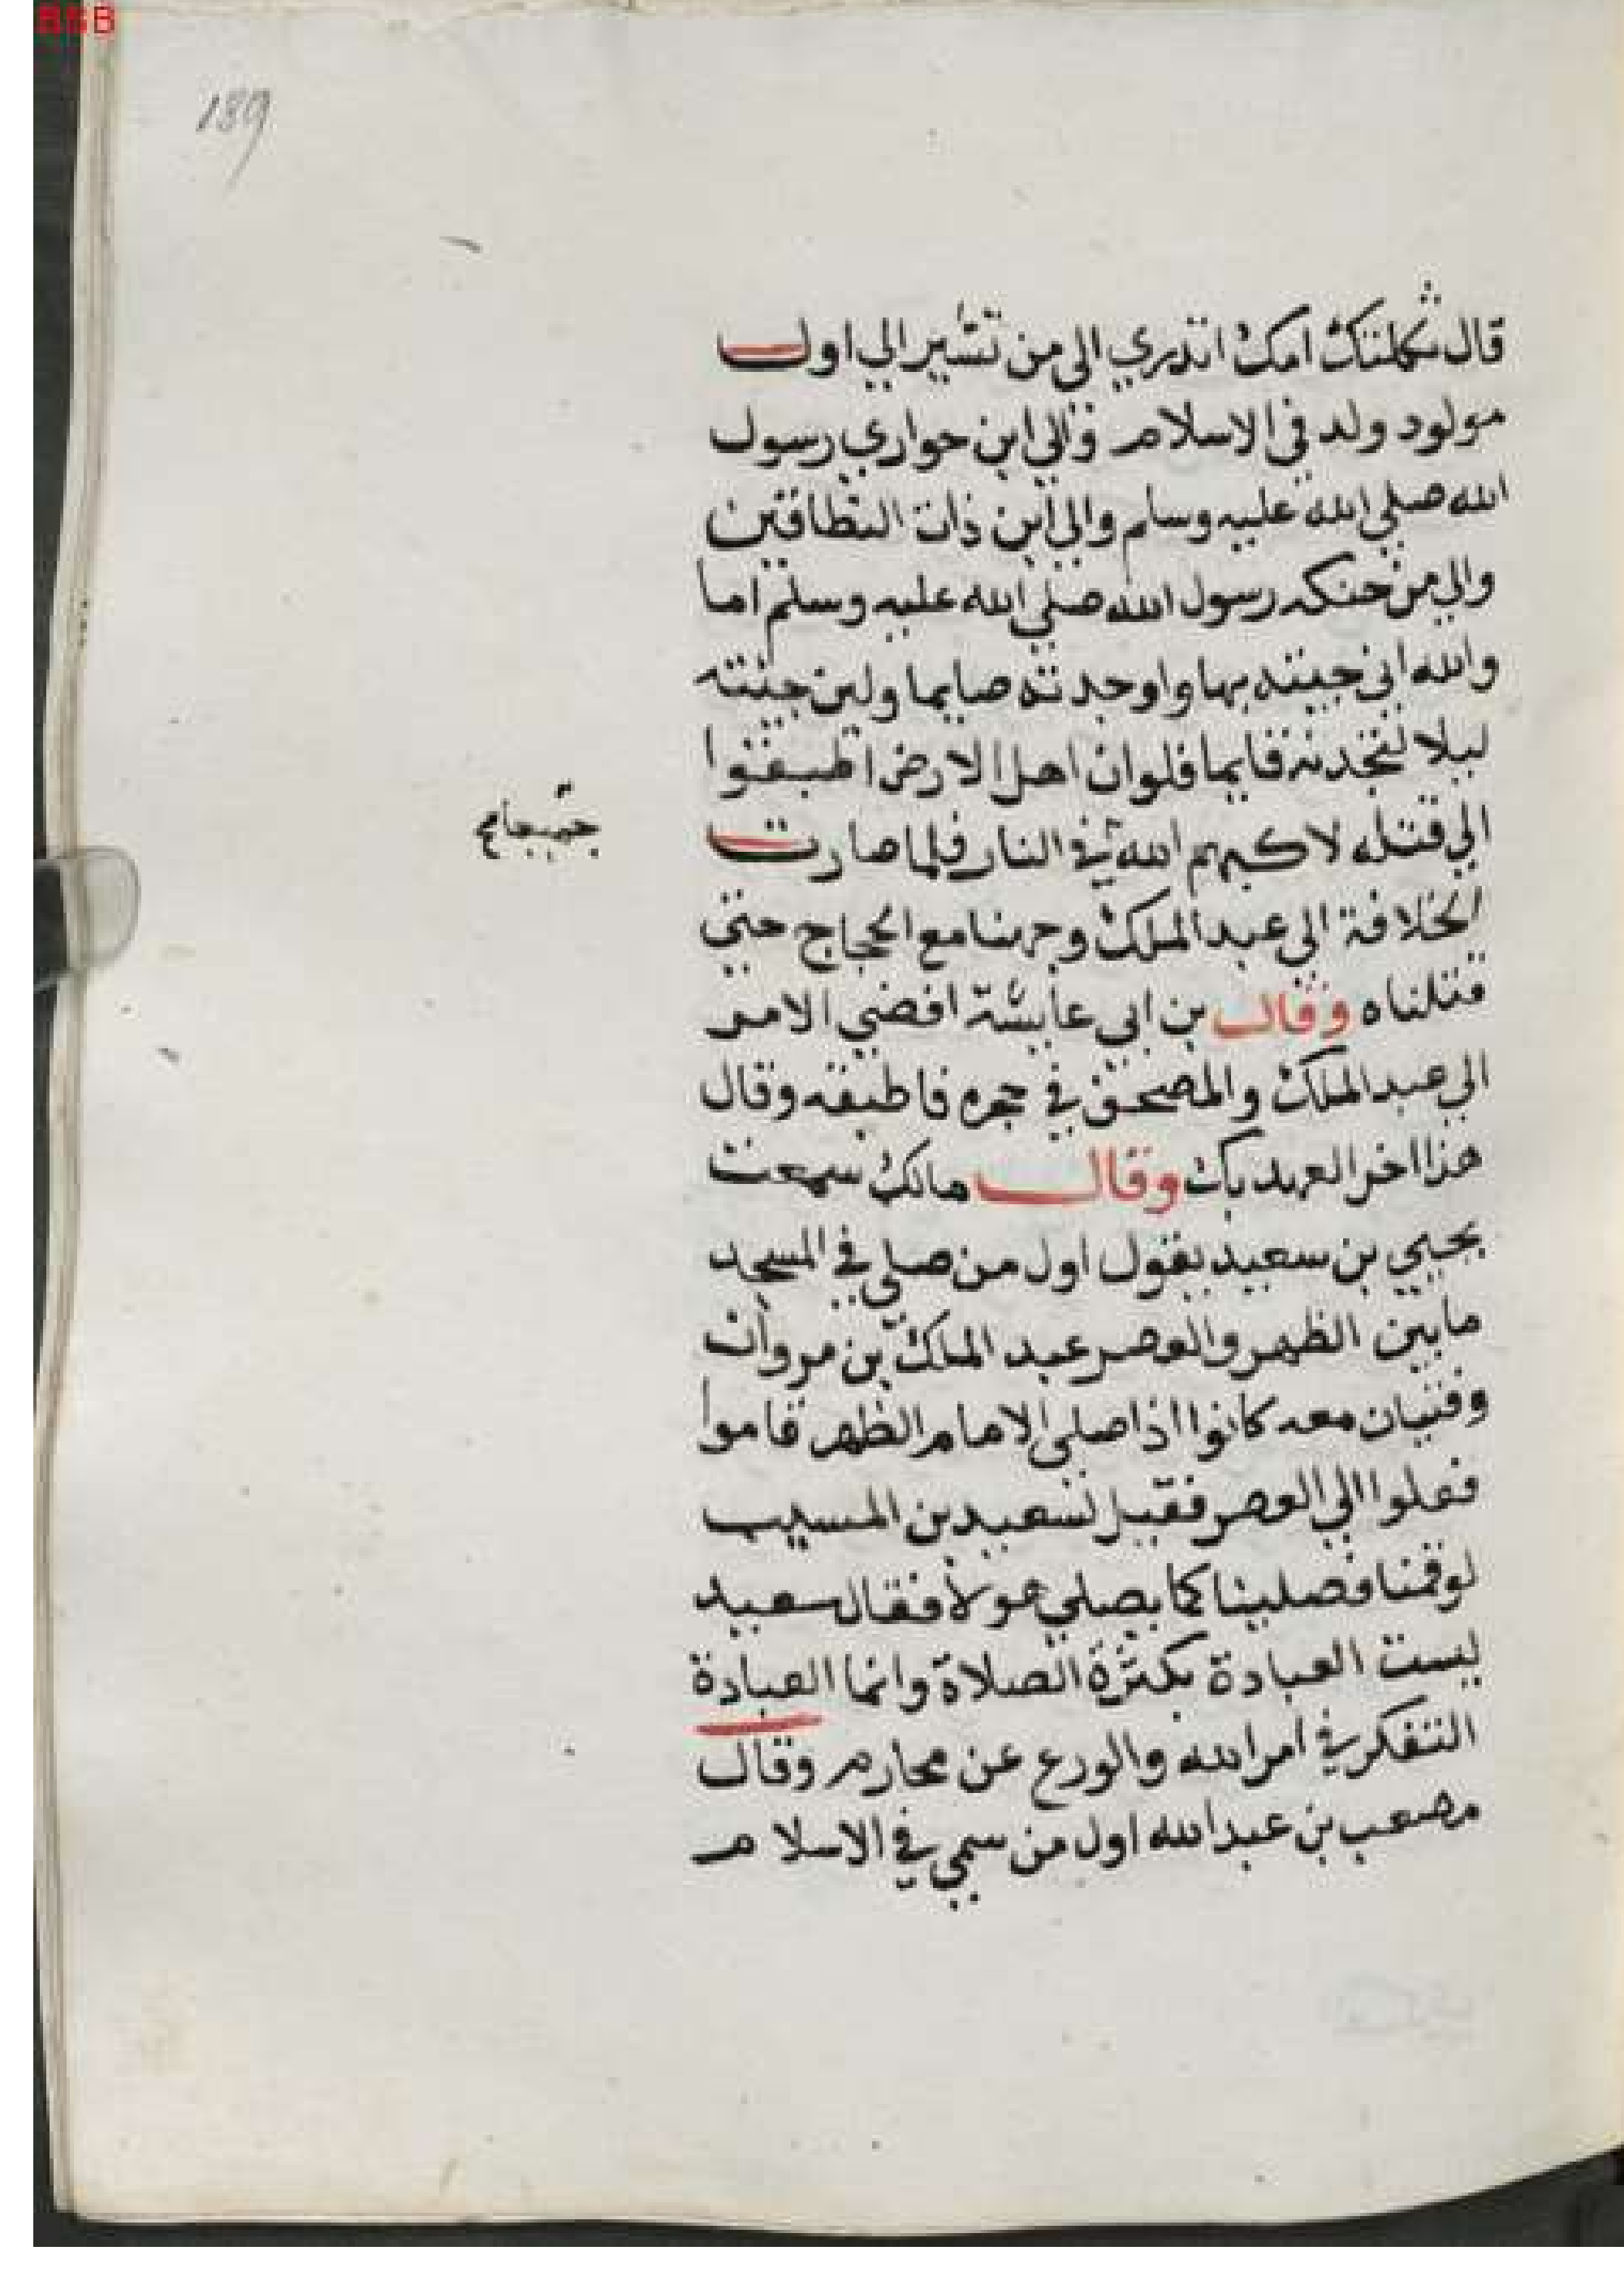 BSB
189
قال ثكلتك امك اتدري الى من تشير الي اول
مولود ولد في الاسلام والي ابن حواري رسول
الله صلي الله عليه وسلم والي ابن ذات النطاقين
والي من حنكه رسول الله صلي الله عليه وسلم اما
والله اني جيته بها وا وجدته صايما ولين جيته
ليلا لتجدنه قايما فلو ان اهل الارض اطبقوا
الي قتله لاكبهم الله في النار فلما صارت
الخلافة الى عبد الملك وجهنا مع الحجاج حتي
قتلناه وقال بن ابي عايشة افضي الامر
الي عبد الملك والمصحف في حجره فاطبقه وقال
هذا اخر العهد بك وقال مالك سمعت
يحيي بن سعيد يقول اول من صلي في المسجد
ما بين الظهر والعصر عبد الملك بن مروان
وفتيان معه كانوا اذا صلى الامام الظهر قاموا
فصلوا الي العصر فقيل لسعيد بن المسيب
لو قمنا فصلينا كما يصلي هولا فقال سعيد
ليست العبادة بكثرة الصلاة وانما العبادة
التفكر في امر الله والورع عن محارم وقال
مصعب بن عبد الله اول من سمي في الاسلام